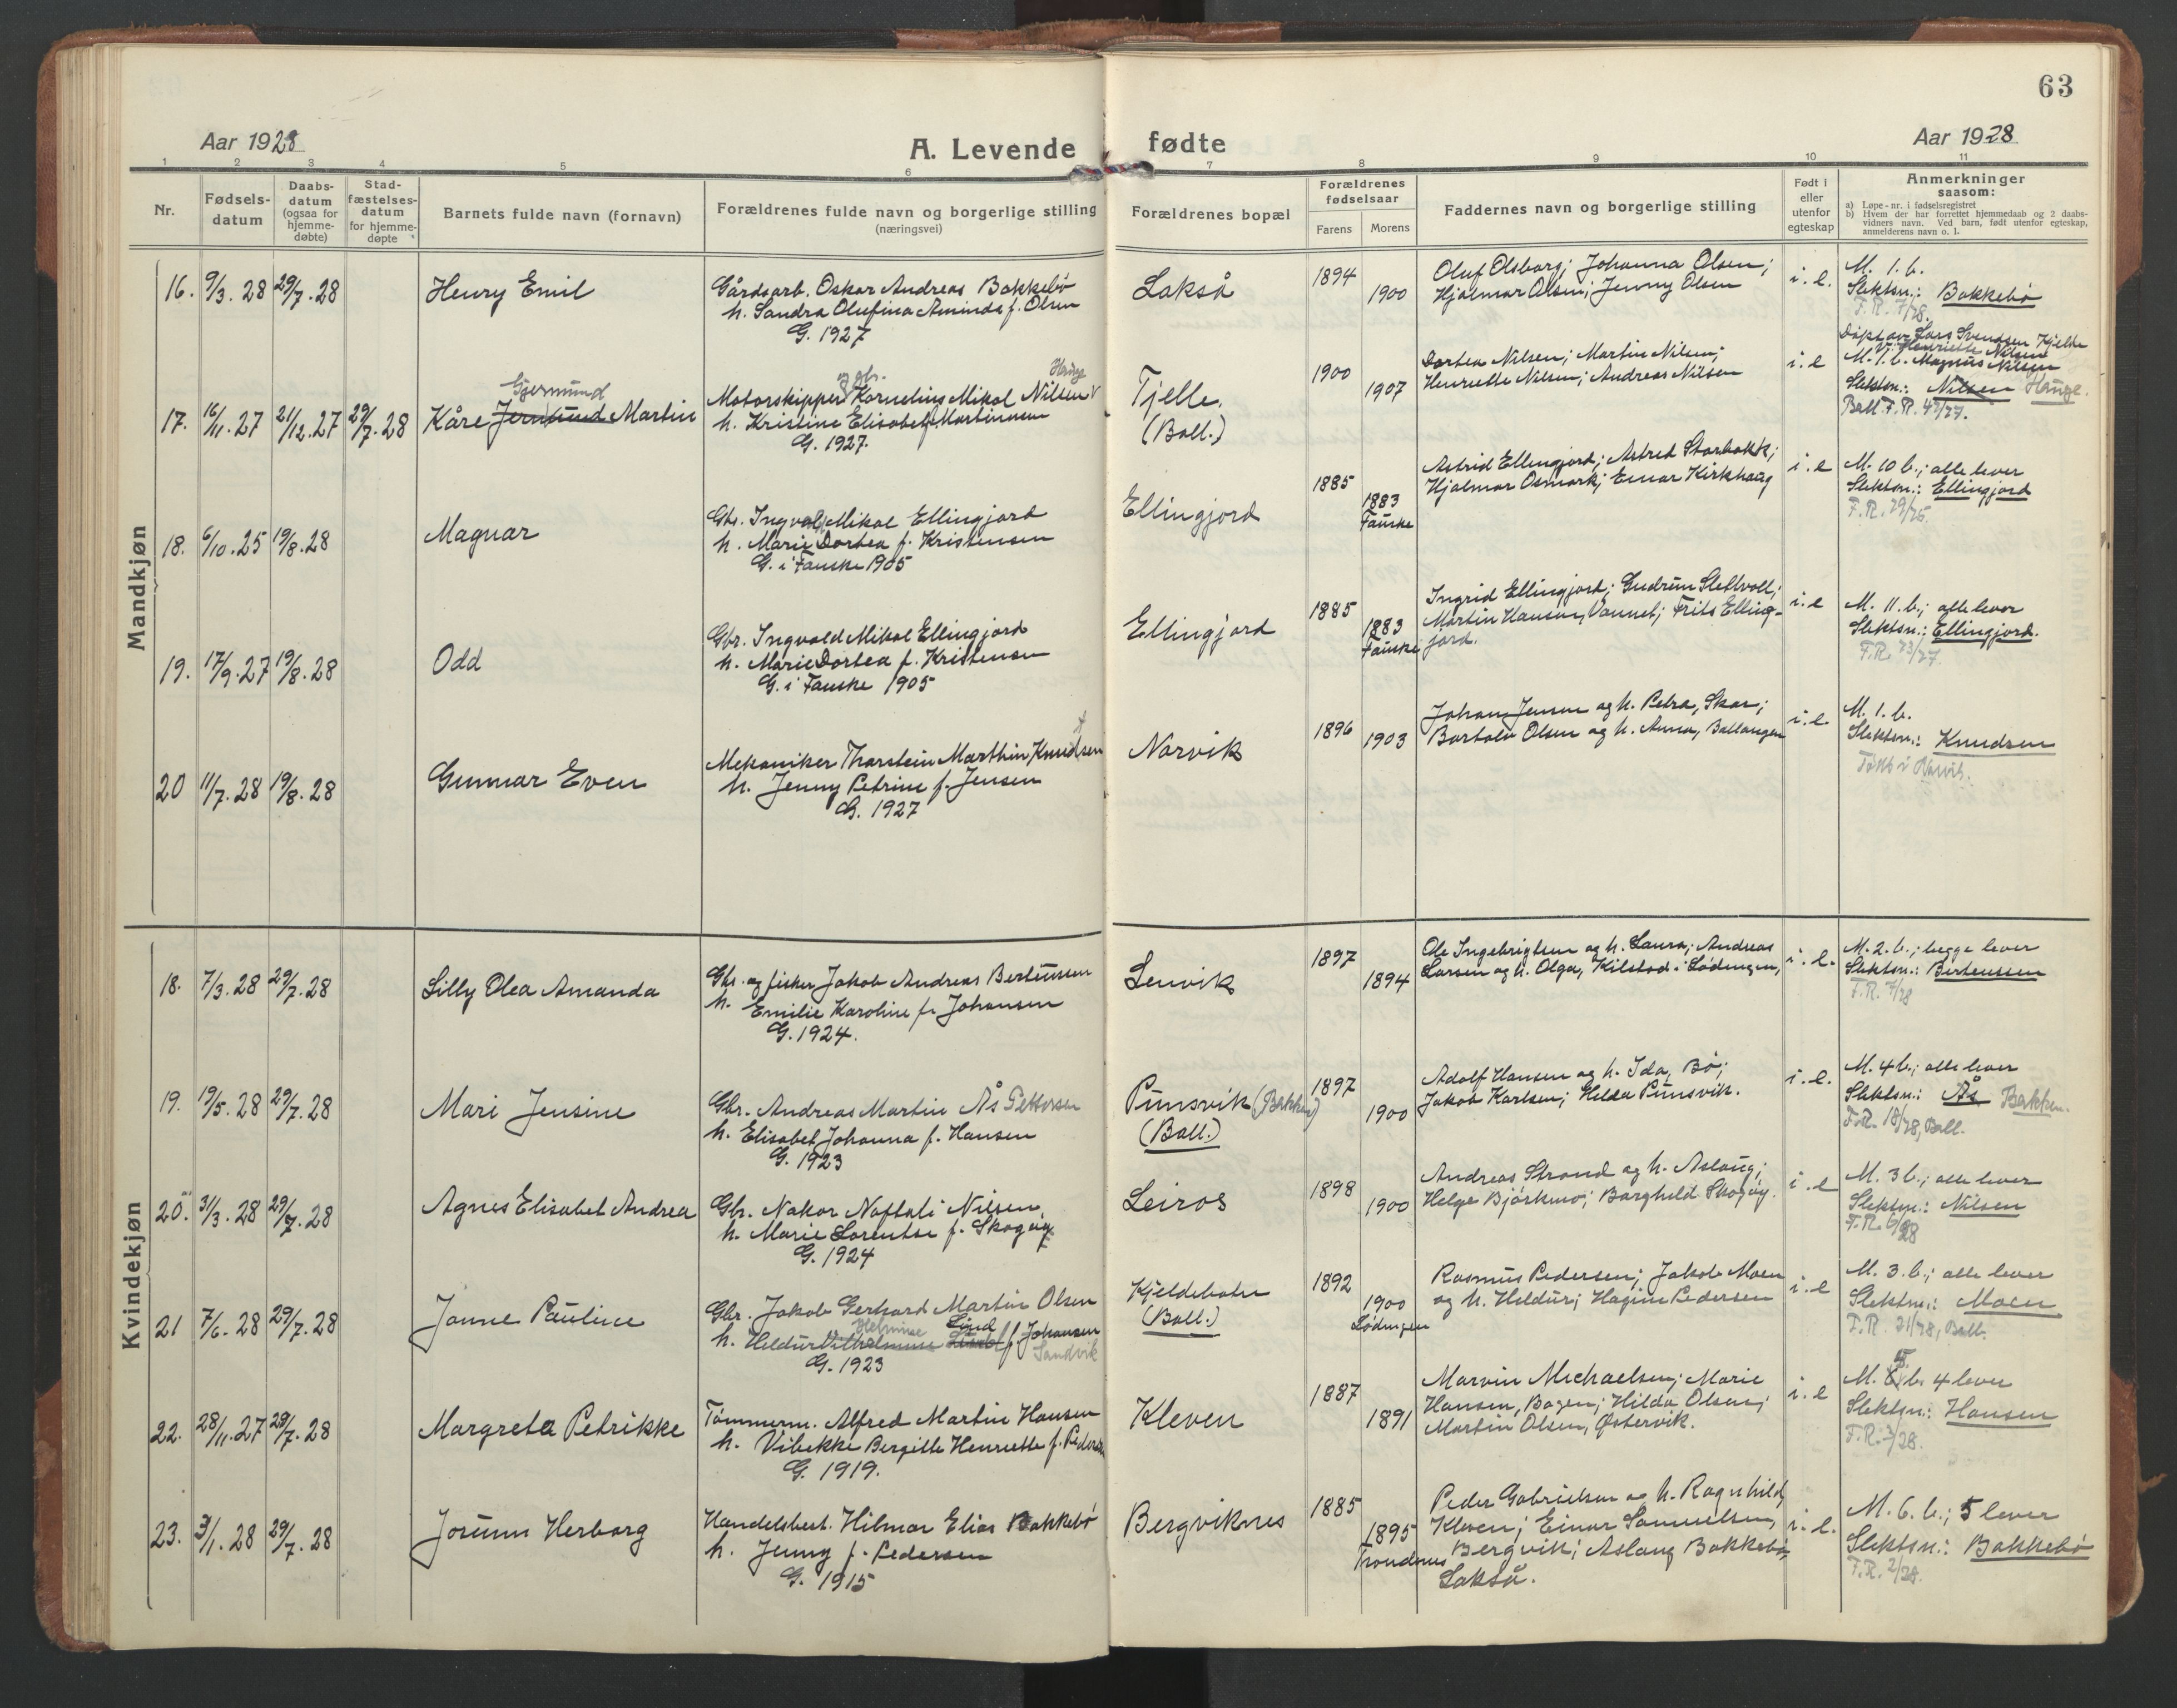 63
Aar 1928
A. Levende fødte
Aar 1928
1 2 3 4 5 6 7 8 9 10 11
Nr.
Fødsels-
datum
Daabs-
datum
(ogsaa for
hjemme-
døbte)
Stad-
fæstelses-
datum
for hjemme-
døpte
Barnets fulde navn (fornavn)
Forældrenes fulde navn og borgerlige stilling
(næringsvei)
Forældrenes bopæl
Forældrenes
fødselsaar
Farens Morens
Faddernes navn og borgerlige stilling
Født i
eller
utenfor
egteskap
Anmerkninger
saasom:
a) Løpe-nr. i fødselsregistret
b) Hvem der har forrettet hjemmedaab og 2 daabs-
vidners navn. Ved barn, født utenfor egteskap,
anmelderens navn o. l.
Mandkjøn
16. 9/3. 28 29/7. 28
Henry Emil
Gårdsarb. Oskar Andreas Bakkebø
h. Sandra Olufina Aminda f. Olsen
G. 1927
Lakså
1894
1900
Oluf Olsborg; Johanna Olsen;
Hjalmar Olsen; Jenny Olsen
i. e.
M. 1. b.
Slektsn.: Bakkebø
F.R. 7/28.
17. 16/11. 27 21/12. 27 29/7. 28
Gjermund
Kåre Jermund Martin
og gbr. Hauge
Motorskipper Kornelius Mikal Nilsen
h. Kristine Elisabet f. Martinsen
G. 1927.
Tjelle.
(Ball.)
1900
1907
Dortea Nilsen; Martin Nilsen;
Henriette Nilsen; Andreas Nilsen
i. e
Døpt av Lars Svendsen Kjelde
V. Henriette Nilsen
M. 1. b. Magnus Nilsen
Slektsn.: Nilsen Hauge.
Ball. F.R. 42/27.
18. 6/10. 25 19/8. 28
Magnar
Gbr. Ingvald Mikal Ellingjord
h. Marie Dortea f. Kristensen
G. i Fauske 1905
Ellingjord
1885
1883
Fauske
Astrid Ellingjord; Astred Storbakk;
Hjalmar Osmark; Einar Kirkhaug
i. e
M. 10 b.; alle lever
Slektsn.: Ellingjord
F.R. 29/25.
19. 17/9. 27 19/8. 28
Odd
Gbr. Ingvald Mikal Ellingjord
h. Marie Dortea f. Kristensen
G. i Fauske 1905
Ellingjord
1885
1883
Fauske
Ingrid Ellingjord; Gudrun Slettvoll;
Martin Hansen, Vannet; Frits Elling-
jord.
i. e
M. 11. b.; alle lever
Slektsn.: Ellingjord.
F.R. 23/27.
20 11/7. 28 19/8. 28
Gunnar Even
Mekaniker Thorstein Marthin Knudsen
h. Jenny Petrine f. Jensen
G. 1927
Narvik
1896
1903
Johan Jensen og h. Petra, Skar;
Bartolv Olsen og h. Anna, Ballangen
i. e.
M. 1. b.
Slektsn.: Knudsen
Født i Narvik.
Kvindekjøn
18. 7/3. 28 29/7. 28
Lilly Olea Amanda
Gbr. og fisker Jakob Andreas Berteussen
h. Emilie Karoline f. Johansen
G. 1924.
Lenvik
1897
1894
Ole Ingebrigtsen og h. Laura; Andreas
Larsen og h. Olga, Kilstad i Lødingen,
i. e.
M. 2. b.; begge lever
Slektsn.: Berteussen
F.R. 4/28
19. 19/5. 28 29/7. 28
Mari Jensine
Gbr. Andreas Martin Ås Pettersen
h. Elisabet Johanna f. Hansen
G. 1923
Punsvik (Bakken)
(Ball.)
1897
1900
Adolf Hansen og h. Ida, Bø;
Jakob Karlsen; Helda Punsvik.
i. e.
M. 4 b.; alle lever
Slektsn.: Ås Bakken.
F.R. 18/28, Ball.
20. 31/3. 28 29/7. 28
Agnes Elisabet Andrea
Gbr. Nakor Naftali Nilsen,
h. Marie Lorentse f. Skogøy
G. 1924
Leiros
1898
1900
Andreas Strand og h. Aslaug;
Helge Bjørkmo; Borghild Skogøy.
i. e
M. 3 b.; alle lever
Slektsn.: Nilsen
F.R. 6/28
21 7/6. 28 29/7. 28
Janne Pauline
Gbr. Jakob Gerhard Martin Olsen
Helmine Lind
h. Heldur Vilhelmine f. Johansen
Sandvik
G. 1923
Kjeldebotn
(Ball.)
1892
1900
Lødingen
Rasmus Pedersen; Jakob Moen
og h. Heldur; Hagine Pedersen
i. e
M. 3. b.; alle lever
Slektsn.: Moen
F.R. 21/28, Ball.
22. 28/11. 27 29/7. 28
Margreta Petrikke
Tømmerm. Alfred Martin Hansen
h. Vibekke Bergitte Henriette f. Pedersen
G. 1919.
Kleven
1887
1891
Marvin Michaelsen; Marie
Hansen, Bogen; Hilda Olsen;
Martin Olsen, Østervik.
i. e
5.
M. b. 4 lever
Slektsn.: Hansen
F.R. 3/28.
23. 3/1. 28 29/7. 28
Jorunn Herborg
Handelsbest. Hilmar Elias Bakkebø
h. Jenny f. Pedersen
G. 1915
Bergviknes
1885
1895
Trondenes
Peder Gabrielsen og h. Ragnhild,
Kleven; Einar Samuelsen,
Bergvik; Aslaug Bakkebø,
Lakså.
i. e.
M. 6. b.; 5 lever
Slektsn.: Bakkebø
F.R. 2/28.